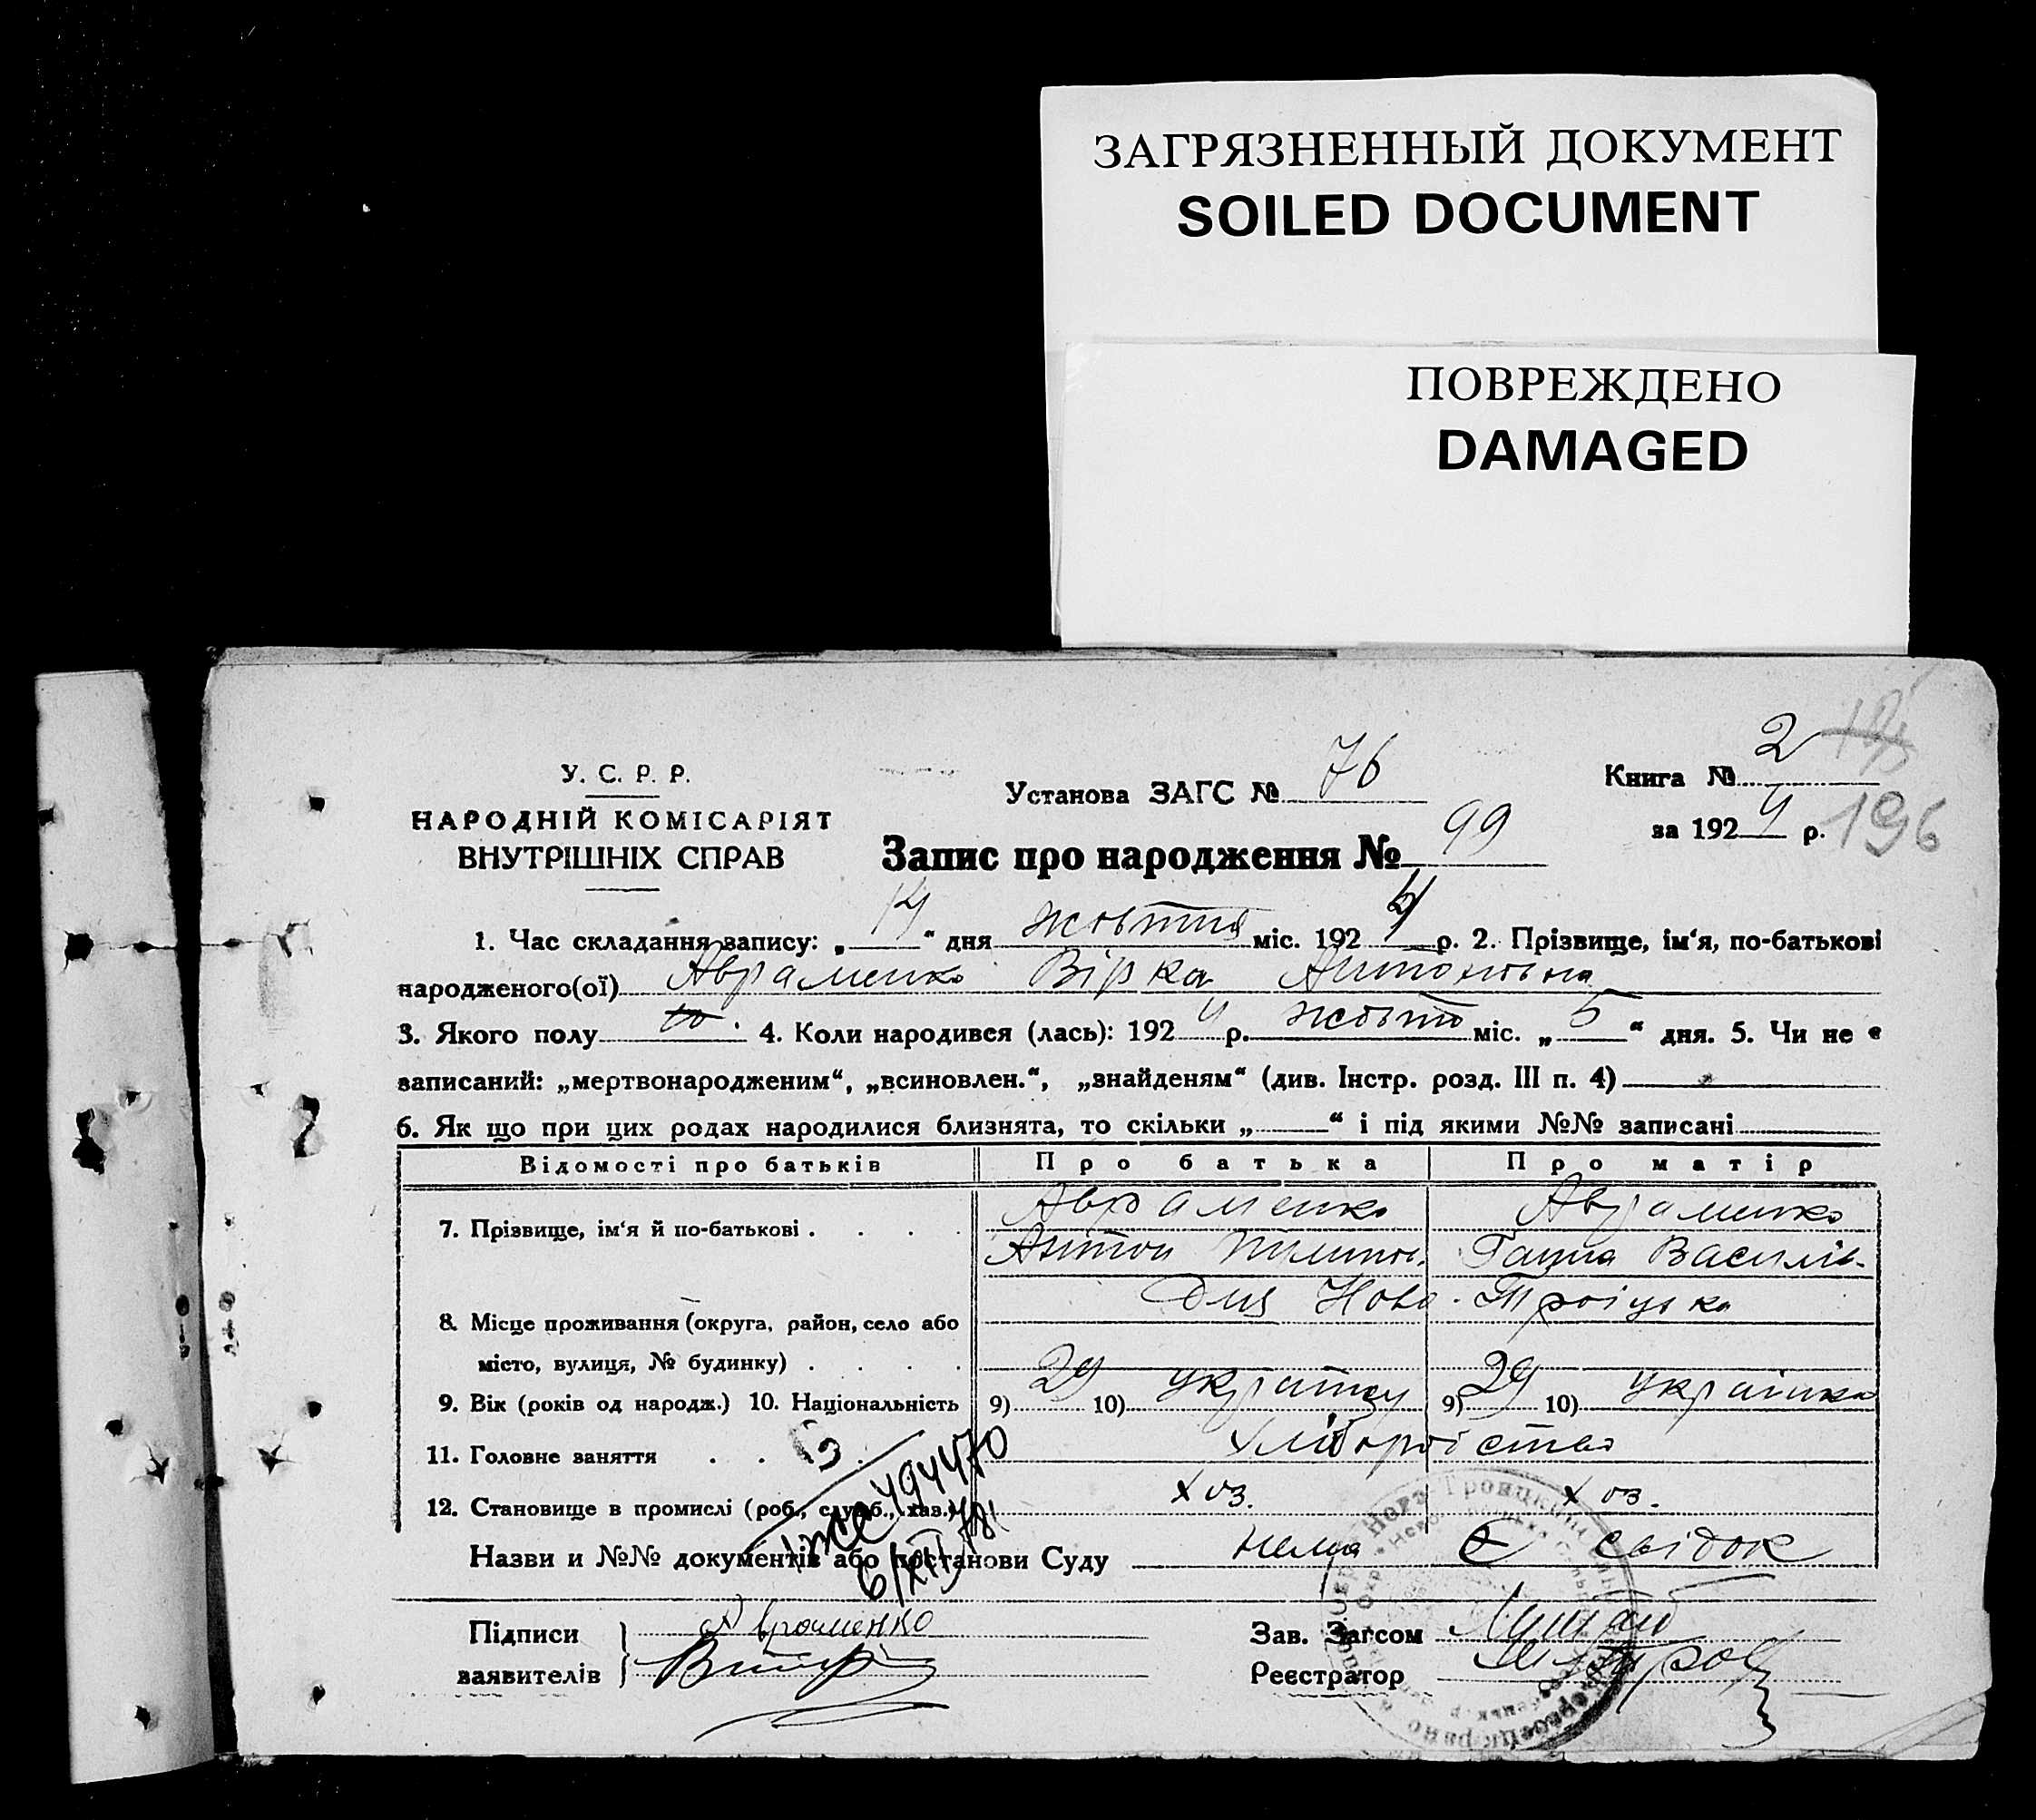 ЗАГРЯЗНЕННЫЙ ДОКУМЕНТ
SOILED DOCUMENT
ПОВРЕЖДЕНО
DAMAGED
У. С. Р. Р.
НАРОДНІЙ КОМІСАРІЯТ
ВНУТРІШНІХ СПРАВ
Установа ЗАГС № 76
Книга № 2
за 1924 р. 196
Запис про народження № 99
1. Час складання запису: „14“ дня жовтня міс. 1924 р. 2. Прізвище, ім‘я, по-батькові
народженого(ої) Авраменко Вірка Антонівна
3. Якого полу ж. 4. Коли народився (лась): 1924 р. жовт міс. „5“ дня. 5. Чи не є
записаний: „мертвонародженим“, „всиновлен.“, „знайденям“ (див. Інстр. розд. III п. 4)
6. Як що при цих родах народилися близнята, то скільки „ “ і під якими №№ записані
Відомості про батьків Про батька Про матір
7. Прізвище, ім‘я й по-батькові . . . . Авраменко Авраменко
Антон Ганна Василів.
Ново-Троіцька
8. Місце проживання (округа, район, село або
місто, вулиця, № будинку) . . . .
9. Вік (років од народж.) 10. Національність 9) 29 10) українец 9) 29 10) українка
11. Головне заняття . . . хліборобство
12. Становище в промислі (роб., служб., хаз.) хоз. хоз.
494470
6/XII 78
Назви и №№ документів або постанови Суду нема Є свідок
Підписи Авраменко
заявителів
Зав. Загсом
Реєстратор